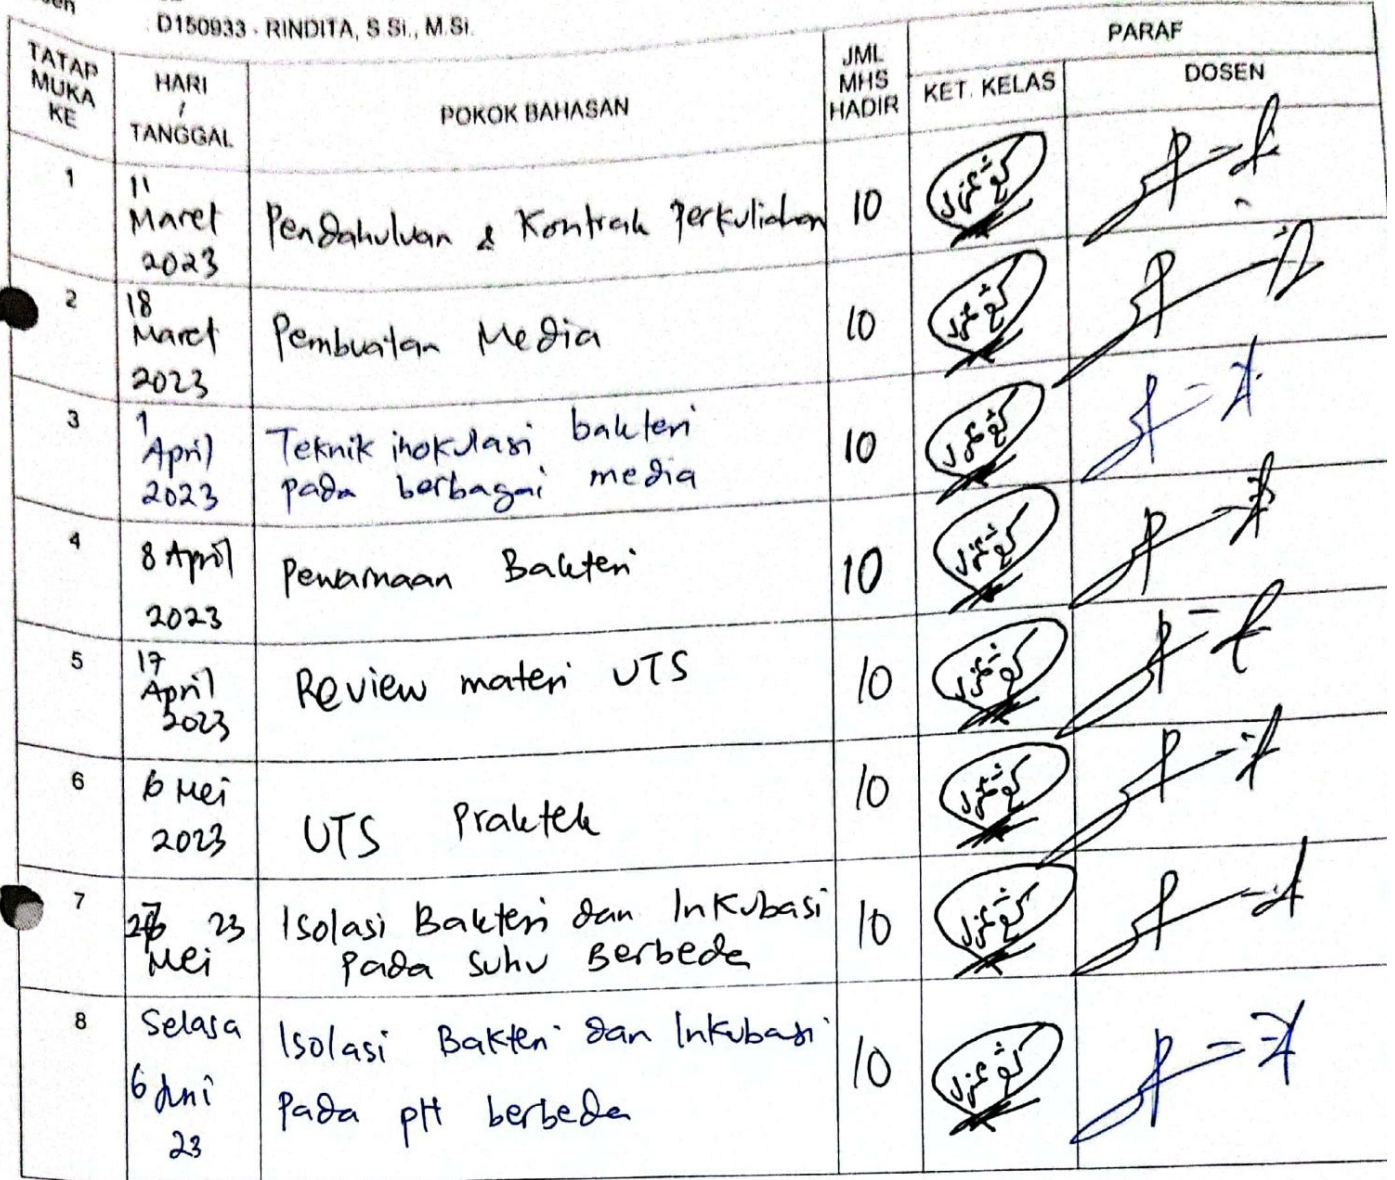 D150933 - RINDITA, S.Si., M.Si.
TATAP MUKA KE
HARI / TANGGAL
POKOK BAHASAN
JML MHS HADIR
PARAF
KET. KELAS
DOSEN
1
11 Maret 2023
Pendahuluan & Kontrak Perkuliahan
10
2
18 Maret 2023
Pembuatan Media
10
3
1 April 2023
Teknik inokulasi bakteri
pada berbagai media
10
4
8 April 2023
Pewarnaan Bakteri
10
5
17 April 2023
Review materi UTS
10
6
6 Mei 2023
UTS Praktek
10
7
27 Mei 23
Isolasi Bakteri dan Inkubasi
Pada Suhu Berbeda
10
8
Selasa
6 Juni 23
Isolasi Bakteri dan Inkubasi
Pada pH berbeda
10